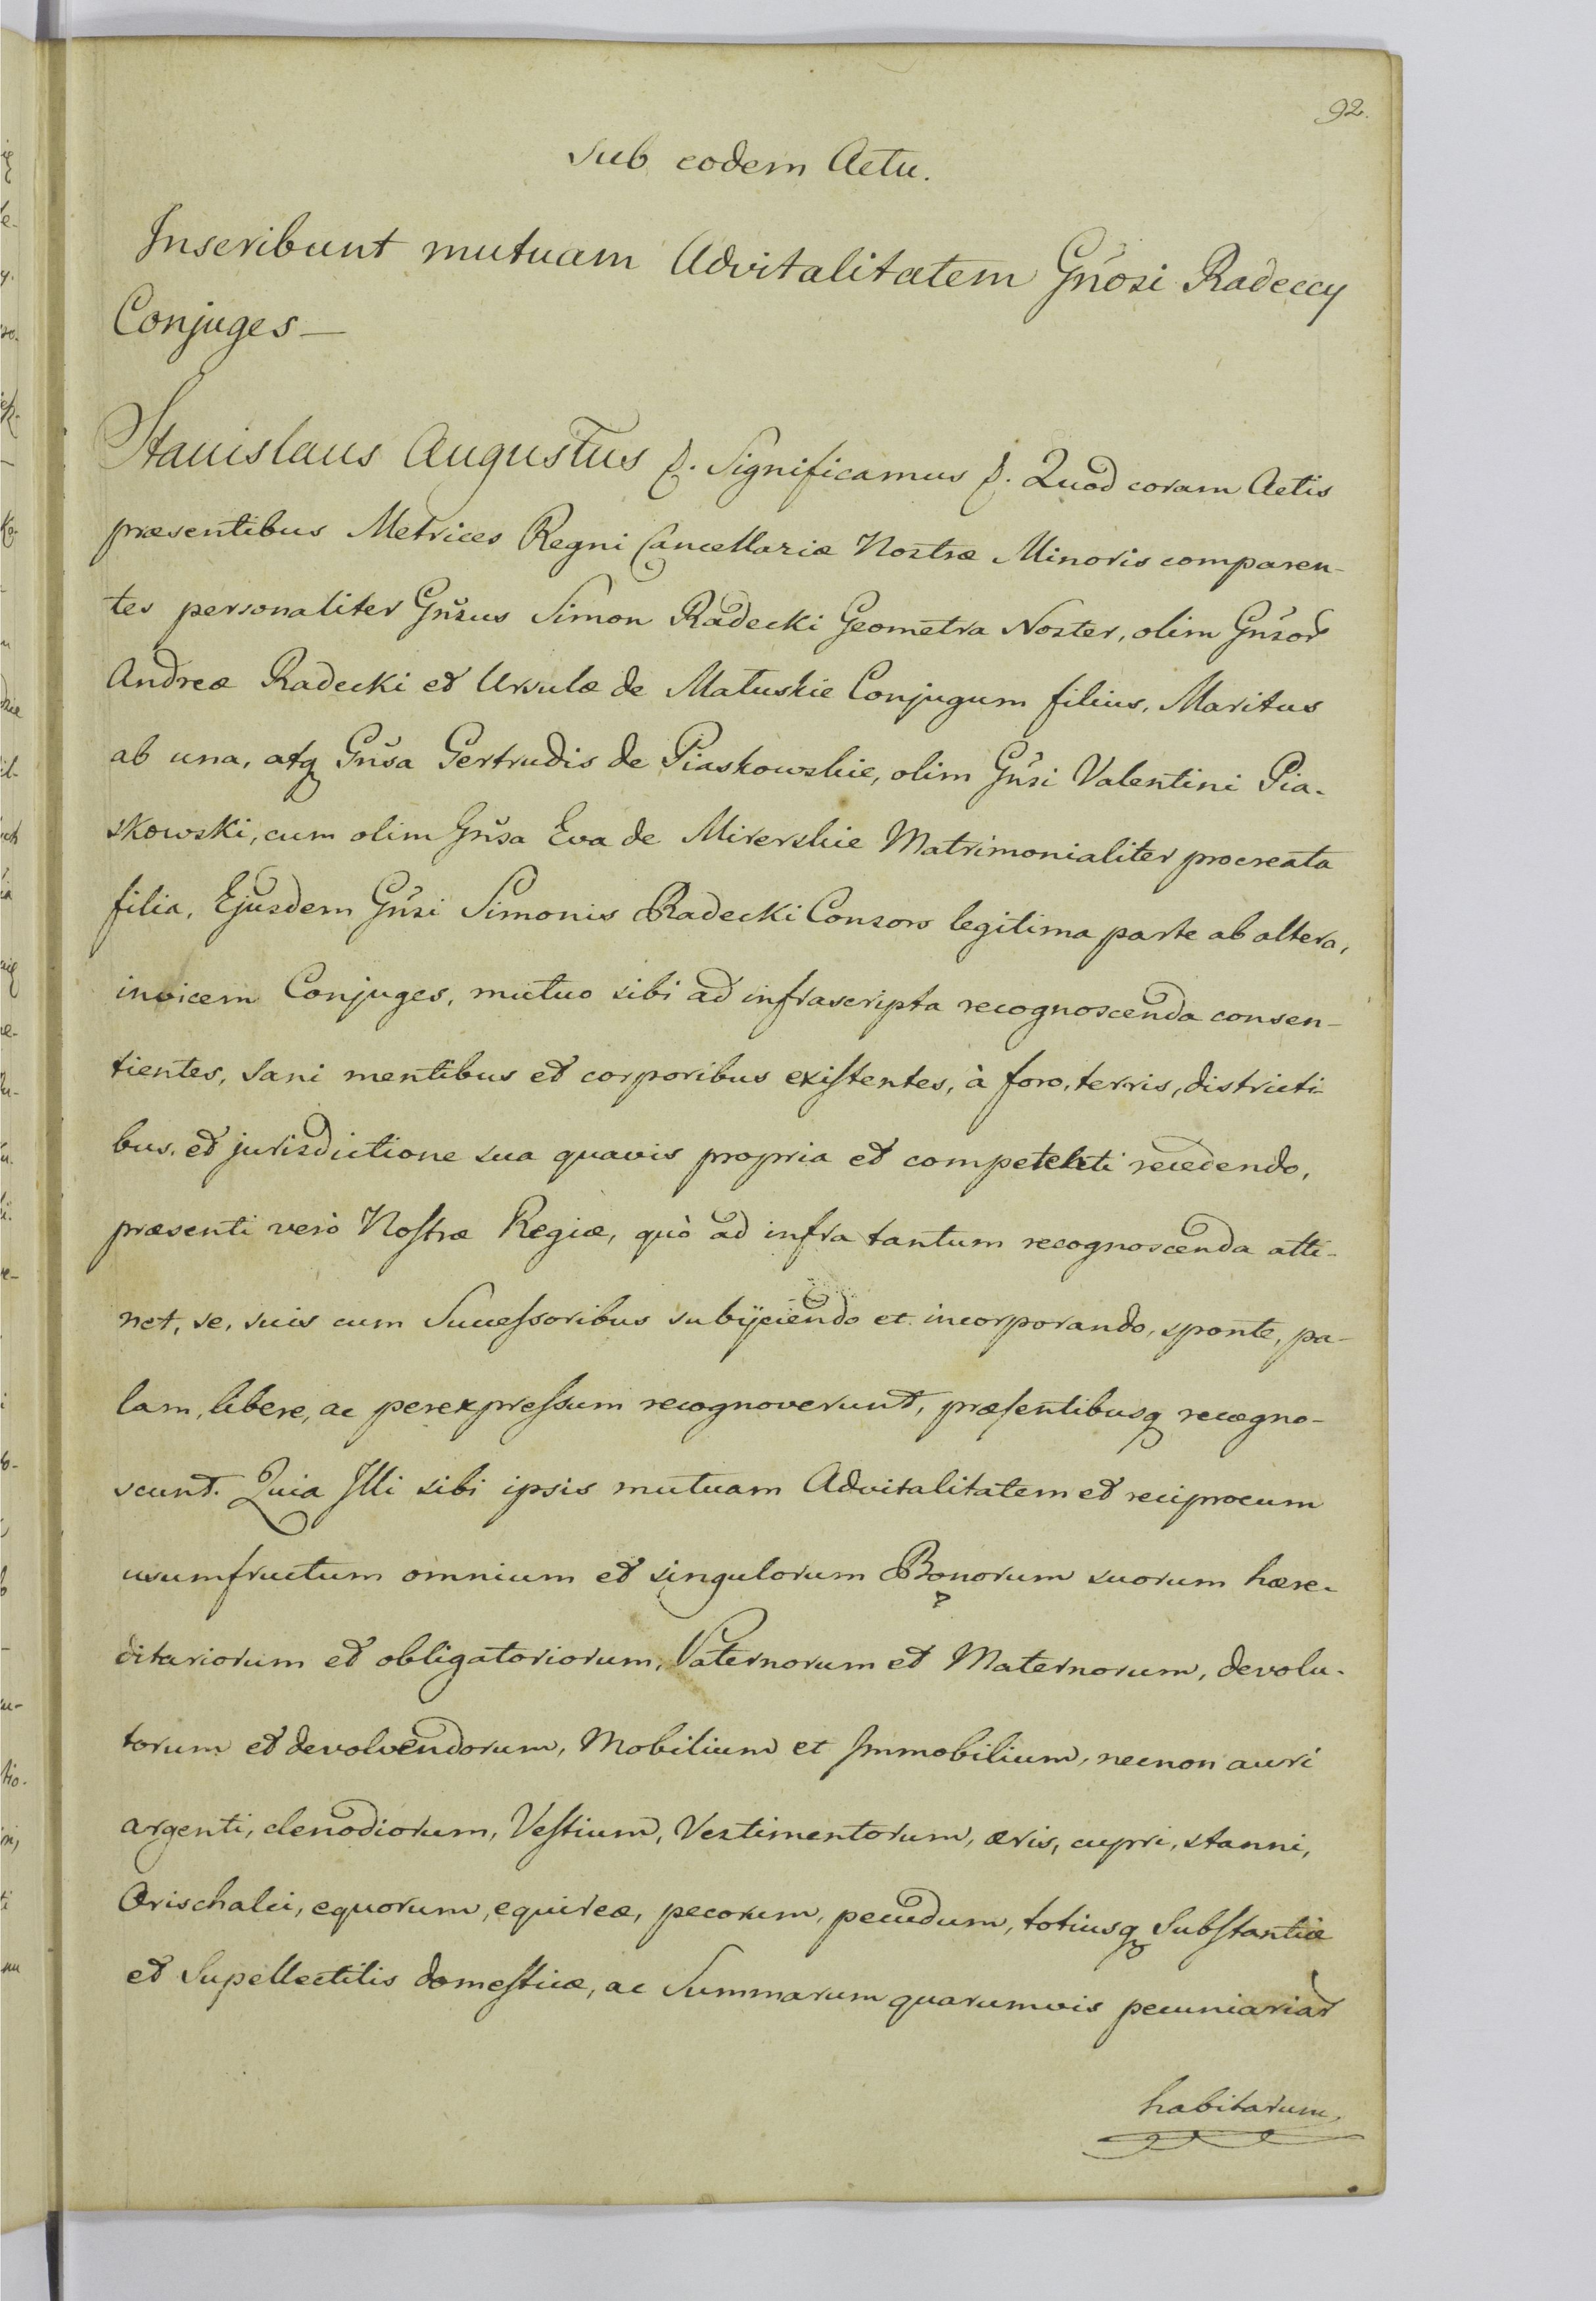 92.
Sub eodem Actu.
Inscribunt mutuam Advitalitatem Gnosi Radeccy
Conjuges—
Stanislaus Augustus &. Significamus &. Quod coram Actis
præsentibus Metrices Regni Cancellariæ Nostræ Minoris comparen-
tes personaliter Gnsus Simon Radecki Geometra Noster, olim Gnsor
Andreæ Radecki et Ursulæ de Matuskie Conjugum filius, Maritus
ab una, atq Gnsa Gertrudis de Piaskowskie, olim Gnsi Valentini Pia-
skowski, cum olim Gnsa Eva de Mirerskie Matrimonialiter procreata
filia, Ejusdem Gnsi Simonis Radecki Consors legitima parte ab altera,
invicem Conjuges, mutuo sibi ad infrascripta recognoscenda consen-
tientes, sani mentibus et corporibus existentes, à foro, terris, districti-
bus, et jurisdictione sua quavis propria et competenti recedendo,
præsenti verò Nostræ Regiæ, quò ad infra tantum recognoscenda atti-
net, se, suis cum Successoribus subijciendo et incorporando, sponte, pa-
lam, libere, ac per expressum recognoverunt, præsentibusq recogno-
scunt. Quia Illi sibi ipsis mutuam Advitalitatem et reciprocum
usumfructum omnium et singulorum Bonorum suorum hære-
ditariorum et obligatoriorum, Paternorum et Maternorum, devolu-
torum et devolvendorum, Mobilium et Immobilium, necnon auri
argenti, clenodiorum, Vestium, Vestimentorum, æris, cupri, stanni,
Orischalci, equorum, equireæ, pecorum, pecudum, totiusq Substantiæ
et Supellectilis domesticæ, ac Summarum quarumvis pecuniariar
habitarum,